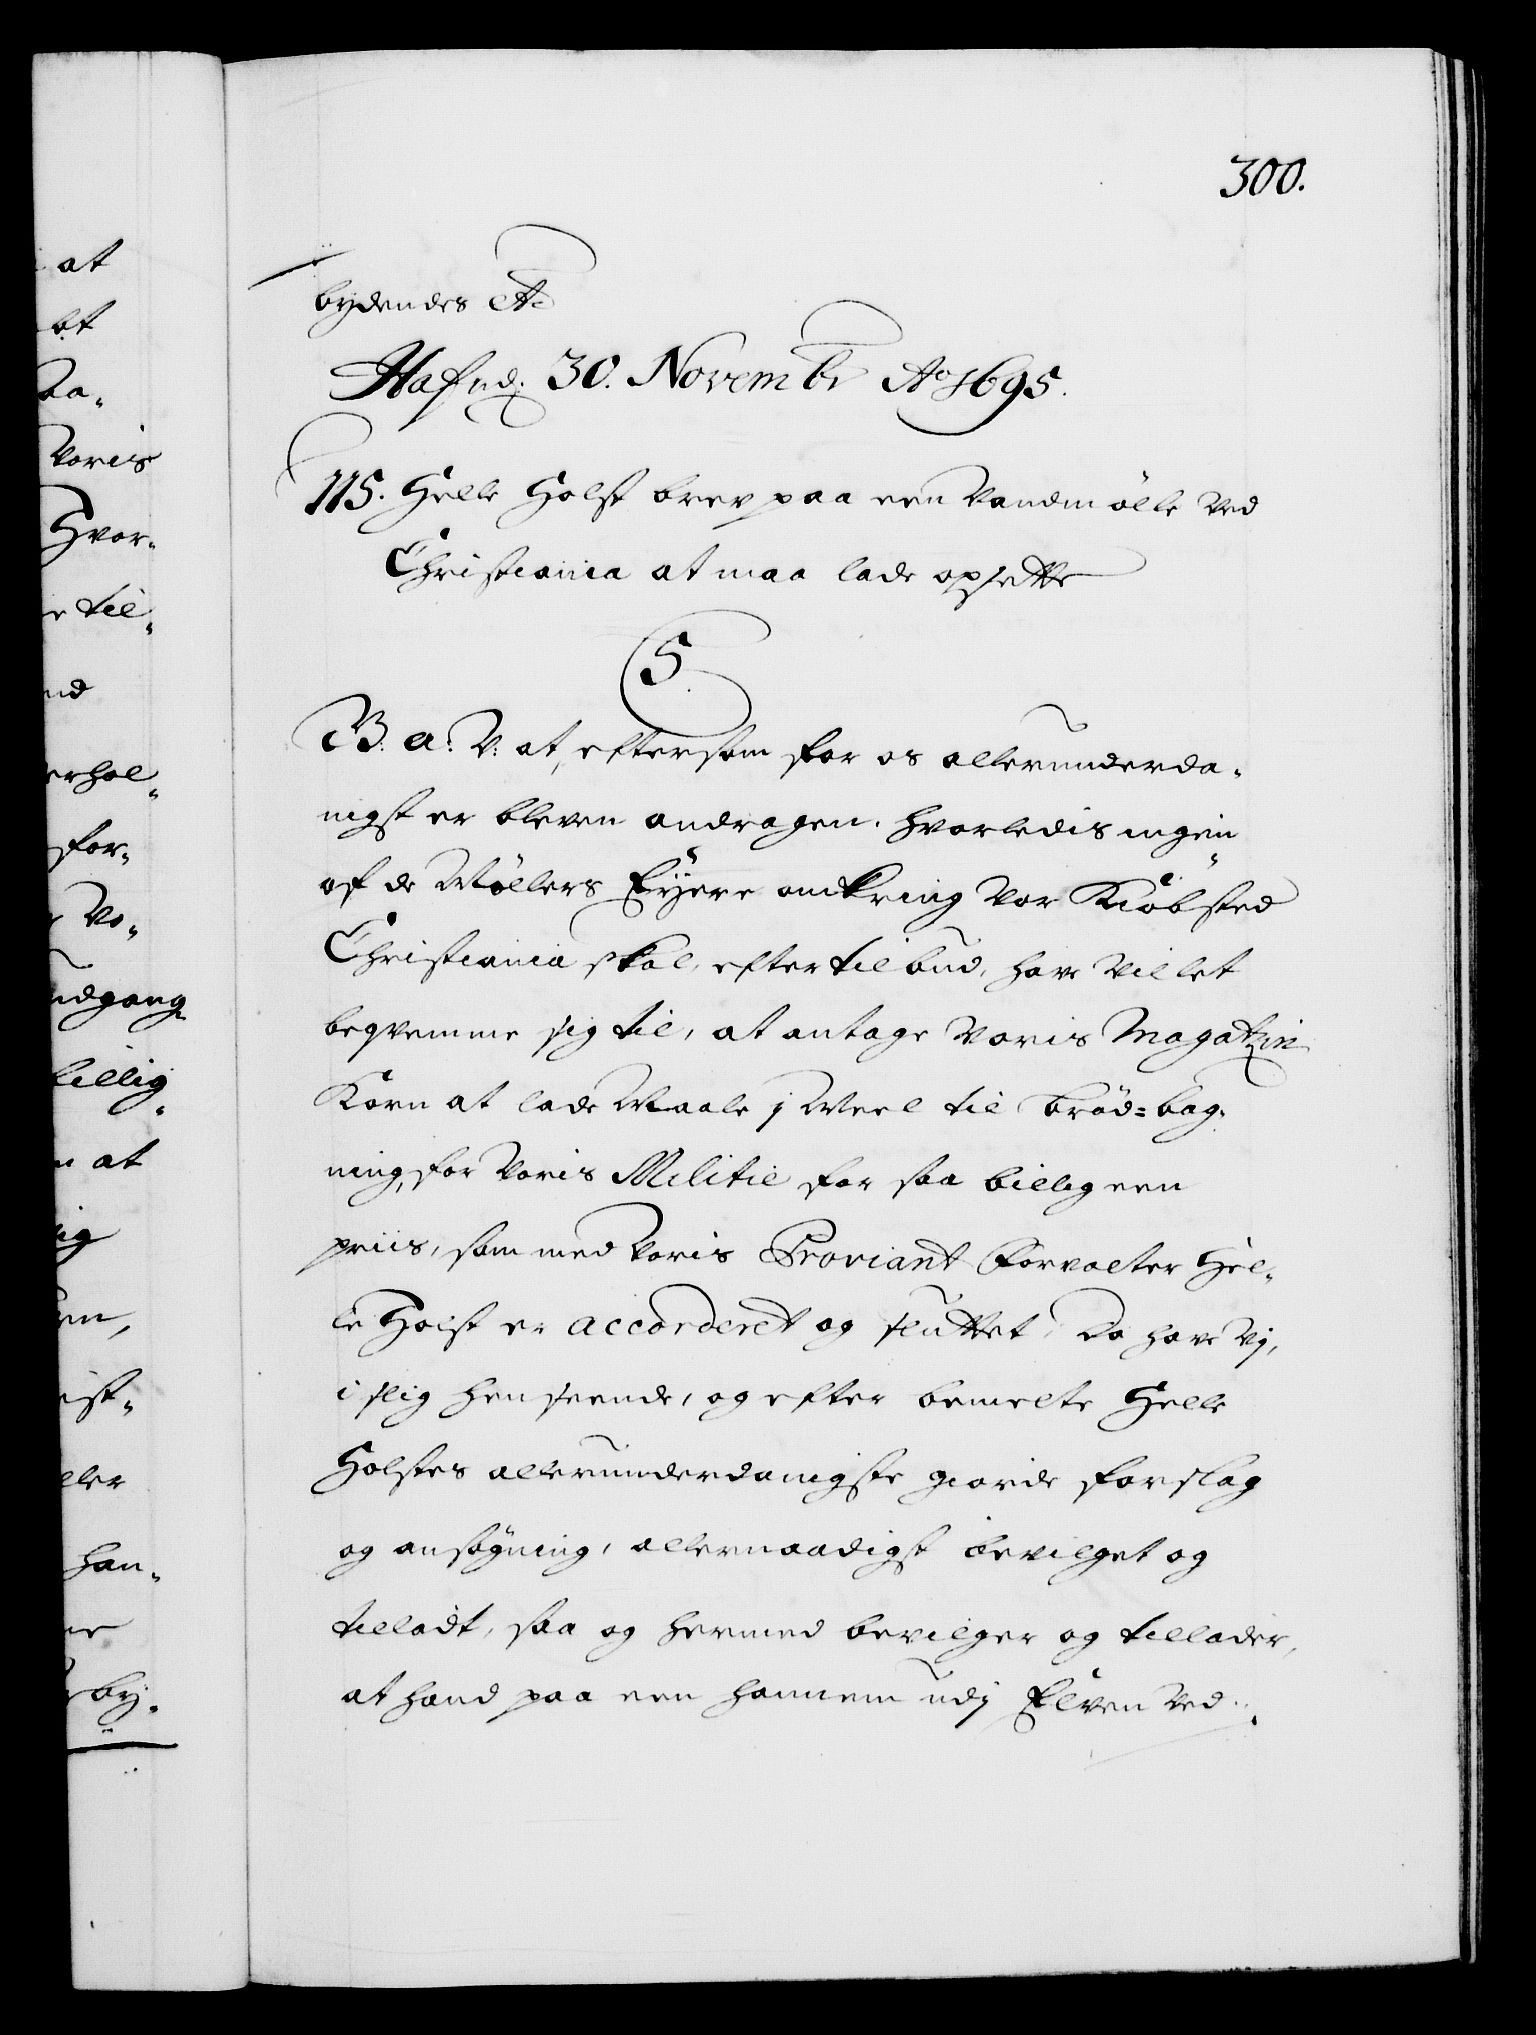 300.
bydendes etc
Hafnd. 30. Novembr Ao 1695.
115. Helle Holst brev paa een Vandmølle ved
Christiania at maa lade opsette
C5
B. a: V: at, eftersom for os allerunderda-
nigst er bleven andragen, hvorledis ingen
af de Møllers Eyere omkring vor Kiøbsted
Christiania skal, efter tilbud, have villet
beqvemme sig til, at antage voris Magatzin
Korn at lade Maale j Meel til Brød=bag-
ning, for voris Militie for saa billig een
priis, som med voris Proviant Forvalter Hel-
le Holst er accorderet og sluttet, Da have Vj,
i slig henseende, og efter bemelte Helle
Holstes allerunderdanigste giorde forslag
og ansøgning, allernaadigst bevilget og
tilladt, saa og hermed bevilger og tillader,
at hand paa een hannem udj Elven ved
at
bt
da-
voris
Hvor-
til-
nd
erhol-
for-
Vo-
udgang
billig-
at
ig
en,
ist-
ller
han-
ne
by-